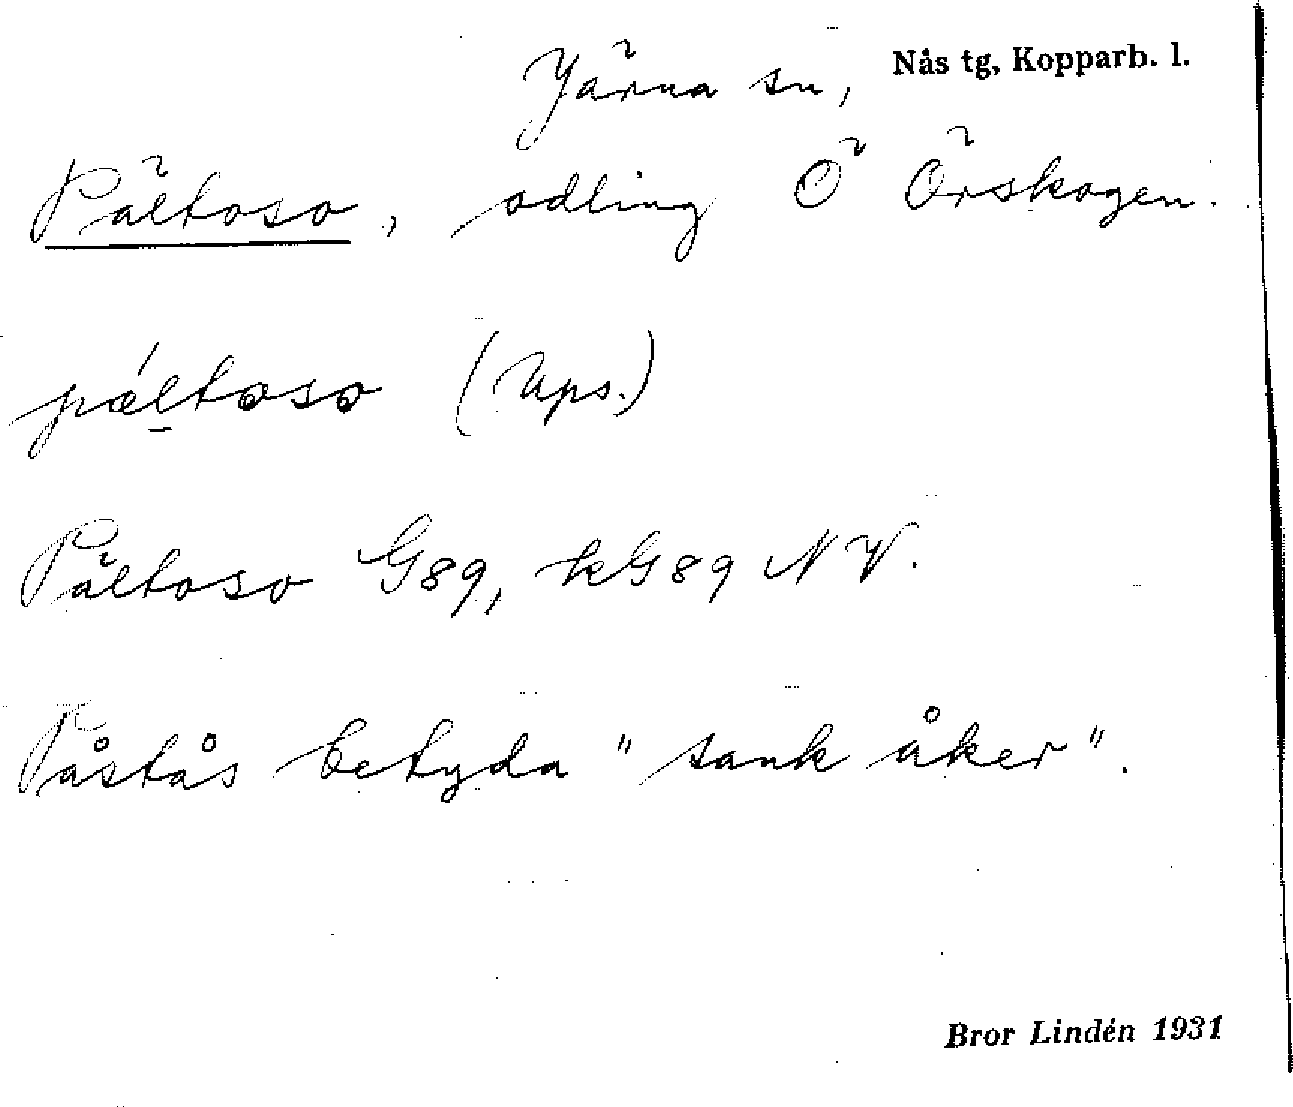 Järna sn, Nås tg, Kopparb. l.
Pältoso, odling Ö Örskogen.
pǽltoso (Ups.)
Pältoso G89, kG89 NV.
Påstås betyda "sank åker".
Bror Lindén 1931